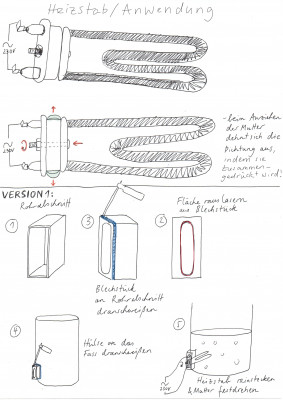 Heizstab/Anwendung
~
230V
~
230V
-beim Anziehen
der Mutter
dehnt sich die
Dichtung aus,
indem sie
zusammen-
gedrückt wird!
VERSION 1:
Rohrabschnitt
Fläche rauslasern
aus Blechstück
1
3
2
Blechstück
an Rohrabschnitt
dranschweißen
4
Hülse an das
Fass dranschweißen
5
~
230V
Heizstab reinstecken
& Mutter festdrehen